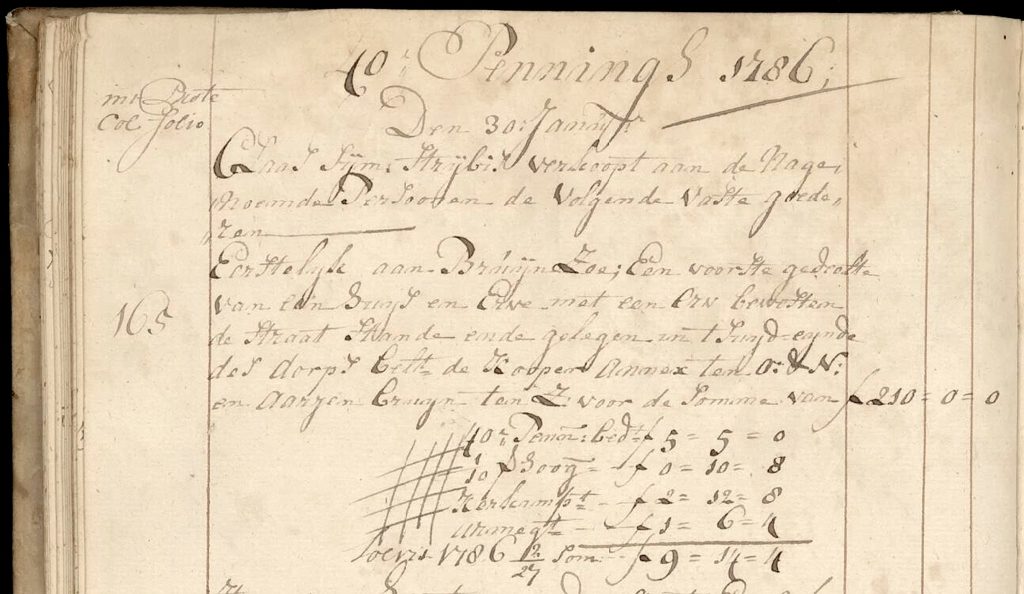 40e. Penningh 1786;
int Prote
Col folio
Den 30: Januy:
Claas Sijms Strijbis verkoopt aan de Nage,
noemde Persoonen de volgende vaste goede,
ren
Eerstelyk aan Bruijn Zoe; Een voorste gedeelte
van een huys en Erve met een Erv bewesten
165
de Straat Staande ende gelegen in 't Zuyd-eynde
des dorps belt: de Kooper Annex ten O: & N:
en Aarjen Cruyn ten Z: voor de Somme van f 210 = 0 = 0
40e. Penn: bedt f 5 = 5 = 0
1/10 f hoog = f 0 = 10 = 8
Kerkampt f 2 = 12 = 8
Armegt = f 1 = 6 = 4
1786 12/27 Som f 9 = 14 = 4